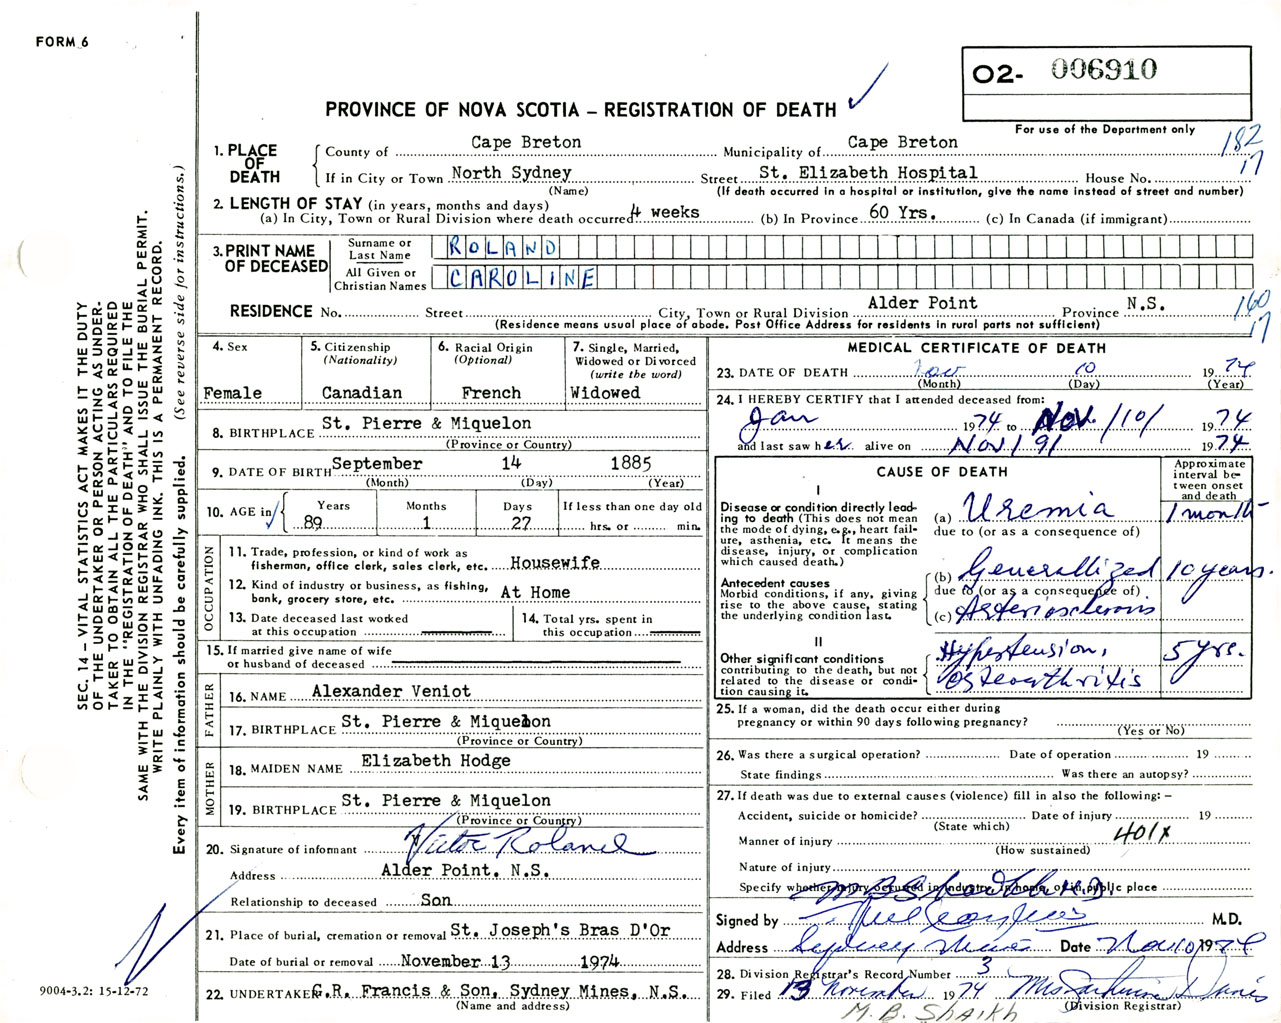 FORM 6
O2- 006910
PROVINCE OF NOVA SCOTIA – REGISTRATION OF DEATH
For use of the Department only
182
17
1. PLACE OF DEATH
County of Cape Breton Municipality of Cape Breton
If in City or Town North Sydney Street St. Elizabeth Hospital House No.
(Name) (If death occurred in a hospital or institution, give the name instead of street and number)
2. LENGTH OF STAY (in years, months and days)
(a) In City, Town or Rural Division where death occurred 4 weeks (b) In Province 60 Yrs. (c) In Canada (if immigrant)
3. PRINT NAME OF DECEASED
Surname or Last Name ROLAND
All Given or Christian Names CAROLINE
RESIDENCE No. Street City, Town or Rural Division Alder Point Province N.S.
(Residence means usual place of abode. Post Office Address for residents in rural parts not sufficient)
160
17
4. Sex
Female
5. Citizenship
(Nationality)
Canadian
6. Racial Origin
(Optional)
French
7. Single, Married,
Widowed or Divorced
(write the word)
Widowed
8. BIRTHPLACE St. Pierre & Miquelon
(Province or Country)
9. DATE OF BIRTH September 14 1885
(Month) (Day) (Year)
10. AGE in
Years Months Days If less than one day old
89 1 27 hrs. or min.
OCCUPATION
11. Trade, profession, or kind of work as
fisherman, office clerk, sales clerk, etc. Housewife
12. Kind of industry or business, as fishing,
bank, grocery store, etc. At Home
13. Date deceased last worked
at this occupation
14. Total yrs. spent in
this occupation
15. If married give name of wife
or husband of deceased
FATHER
16. NAME Alexander Veniot
17. BIRTHPLACE St. Pierre & Miquelon
(Province or Country)
MOTHER
18. MAIDEN NAME Elizabeth Hodge
19. BIRTHPLACE St. Pierre & Miquelon
(Province or Country)
20. Signature of informant Victor Roland
Address Alder Point. N.S.
Relationship to deceased Son
21. Place of burial, cremation or removal St. Joseph's Bras D'Or
Date of burial or removal November 13 1974
22. UNDERTAKER G.R. Francis & Son, Sydney Mines, N.S.
(Name and address)
MEDICAL CERTIFICATE OF DEATH
23. DATE OF DEATH Nov 10 1974
(Month) (Day) (Year)
24. I HEREBY CERTIFY that I attended deceased from:
Jan 1974 to Nov. /10/ 1974
and last saw her alive on Nov 1 9 1 1974
CAUSE OF DEATH
Approximate
interval be-
tween onset
and death
I
Disease or condition directly lead-
ing to death (This does not mean
the mode of dying, e.g., heart fail-
ure, asthenia, etc. It means the
disease, injury, or complication
which caused death.)
(a) Uremia 1 month
due to (or as a consequence of)
Antecedent causes
Morbid conditions, if any, giving
rise to the above cause, stating
the underlying condition last.
(b) Generallized 10 years.
due to (or as a consequence of)
(c) Arteriosclerosis
II
Other significant conditions
contributing to the death, but not
related to the disease or condi-
tion causing it.
Hypertension, 5 yrs.
Osteoarthritis
25. If a woman, did the death occur either during
pregnancy or within 90 days following pregnancy?
(Yes or No)
26. Was there a surgical operation? Date of operation 19
State findings Was there an autopsy?
27. If death was due to external causes (violence) fill in also the following: –
Accident, suicide or homicide? Date of injury 19
(State which)
Manner of injury 401X
(How sustained)
Nature of injury
Specify whether injury occurred in industry, in home, or in public place
Signed by M.D.
Address Sydney Mines Date Nov 10 1974
28. Division Registrar's Record Number 3
29. Filed 13 November 1974 Mrs
(Division Registrar)
M. B. SHAIKH
SEC. 14 – VITAL STATISTICS ACT MAKES IT THE DUTY
OF THE UNDERTAKER OR PERSON ACTING AS UNDER-
TAKER TO OBTAIN ALL THE PARTICULARS REQUIRED
IN THE "REGISTRATION OF DEATH" AND TO FILE THE
SAME WITH THE DIVISION REGISTRAR WHO SHALL ISSUE THE BURIAL PERMIT.
WRITE PLAINLY WITH UNFADING INK. THIS IS A PERMANENT RECORD.
Every item of information should be carefully supplied. (See reverse side for instructions.)
9004-3.2: 15-12-72